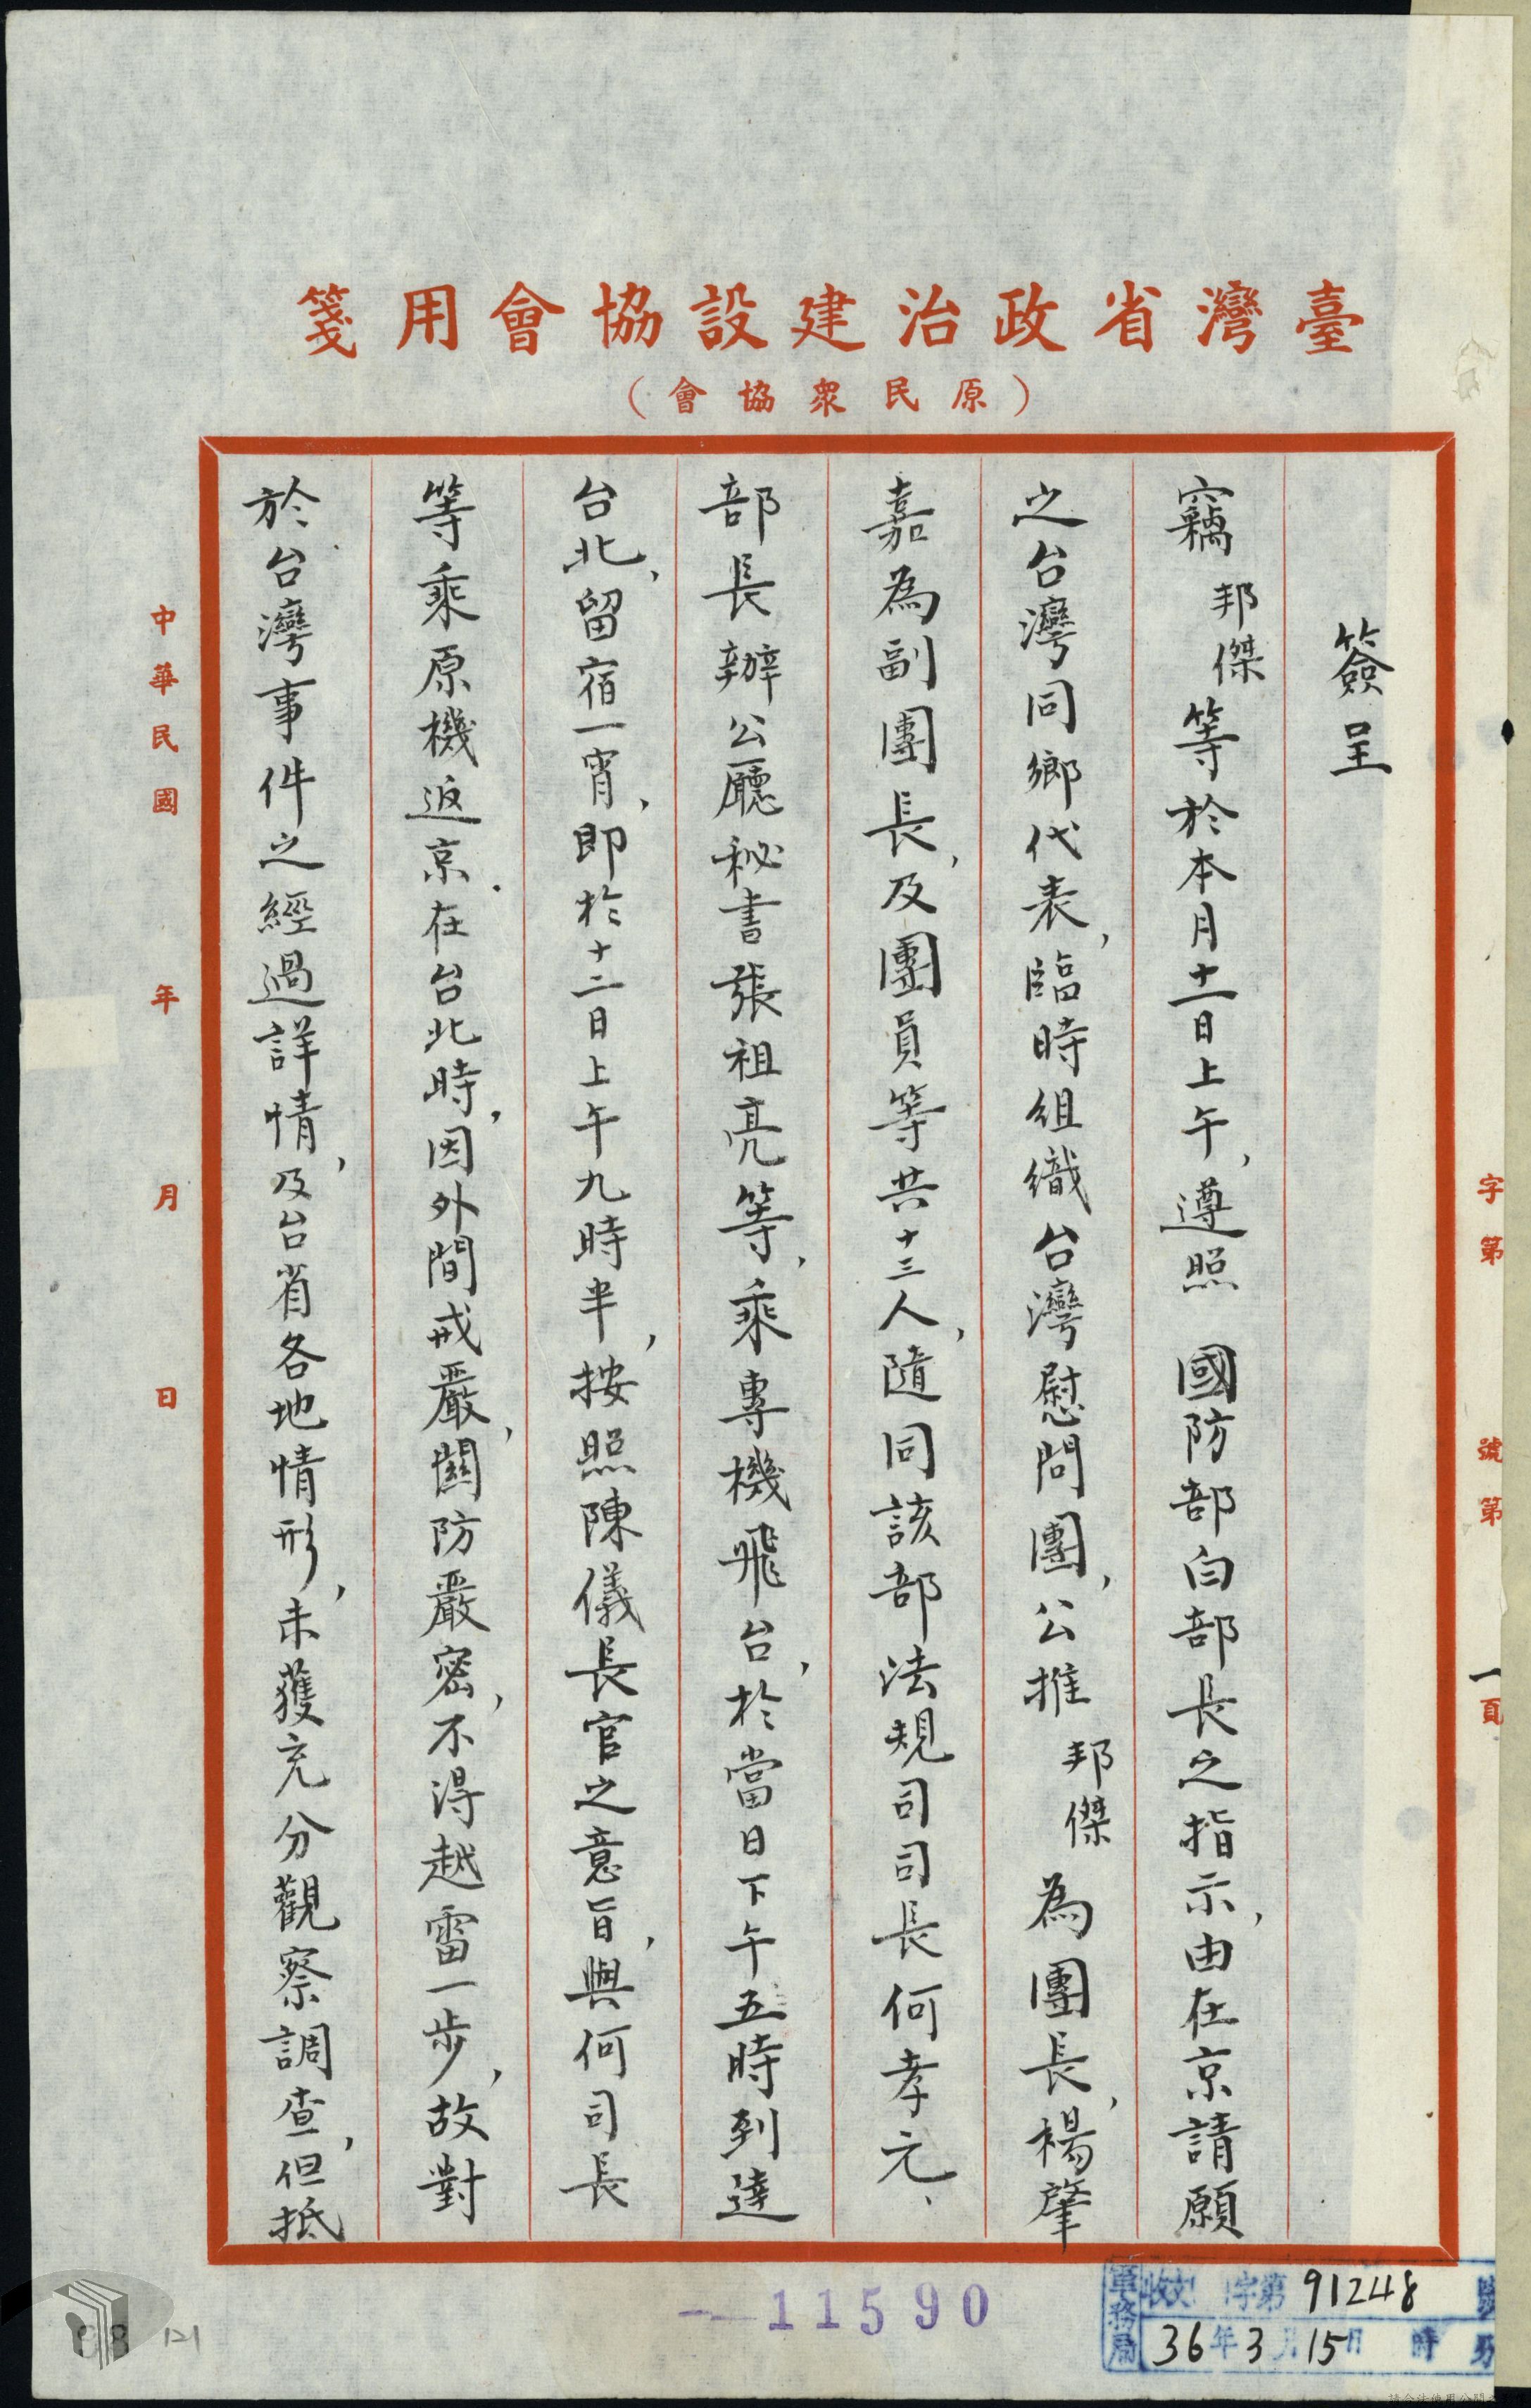 臺灣省政治建設協會用箋
（原民眾協會）
字第　號第一頁
簽呈
竊邦傑等於本月十一日上午，遵照　國防部白部長之指示，由在京請願
之台灣同鄉代表，臨時組織台灣慰問團，公推邦傑為團長，楊肇
嘉為副團長，及團員等共十三人，隨同該部法規司司長何孝元、
部長辦公廳秘書張祖亮等，乘專機飛台，於當日下午五時到達
台北，留宿一宵，即於十二日上午九時半，按照陳儀長官之意旨，與何司長
等乘原機返京．在台北時，因外間戒嚴，關防嚴密，不得越雷一步，故對
於台灣事件之經過詳情，及台省各地情形，未獲充分觀察調查，但抵
中華民國　年　月　日
軍務局
收文　字第91248號
36年3月15日　時　分
11590
121